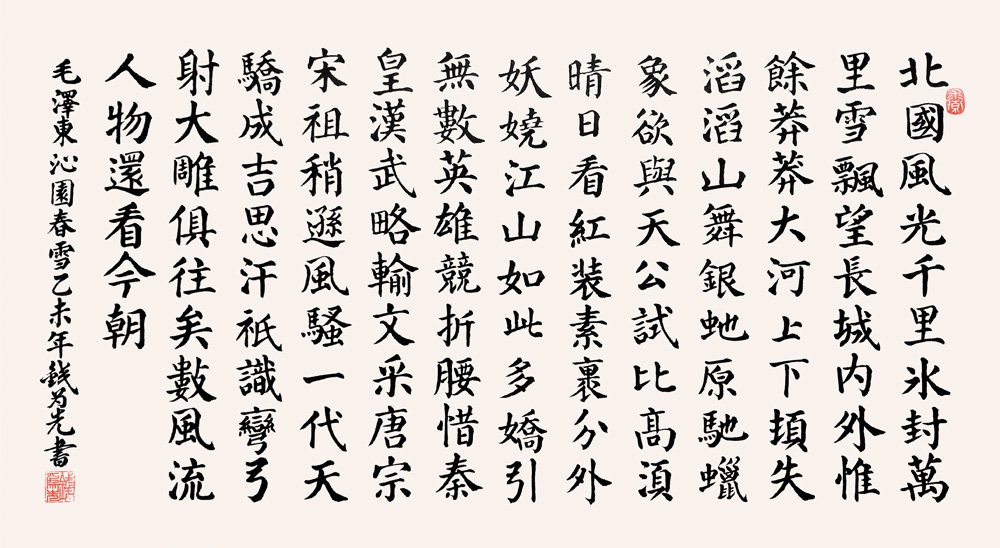 北國風光千里氷封萬
里雪飄望長城内外惟
餘莽莽大河上下頓失
滔滔山舞銀虵原馳蠟
象欲與天公試比高湏
晴日看紅装素裹分外
妖嬈江山如此多嬌引
無數英雄競折腰惜秦
皇漢武略輸文采唐宗
宋祖稍遜風騷一代天
驕成吉思汗祇識彎弓
射大雕俱往矣數風流
人物還看今朝
毛澤東沁園春雪乙未年錢为先書